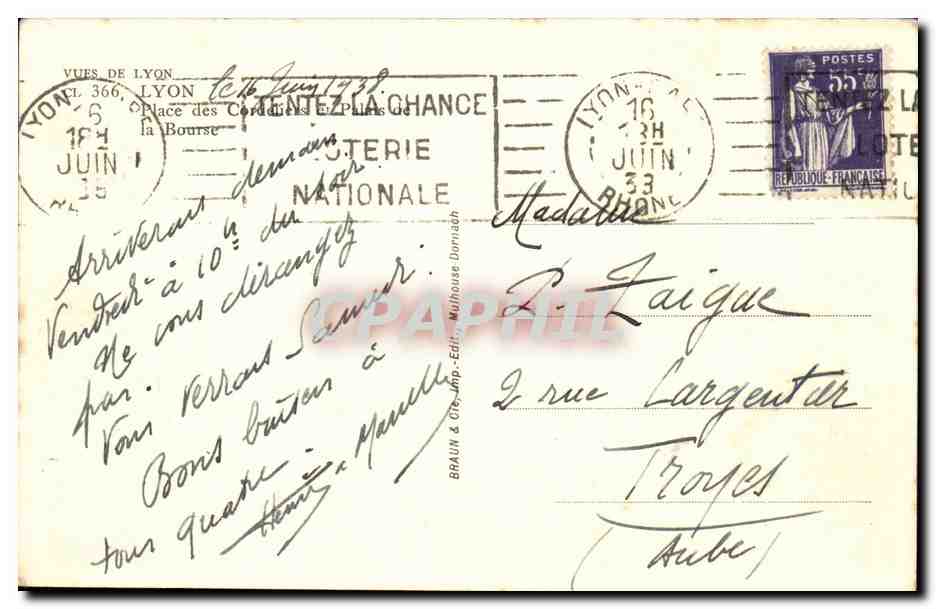 VUES DE LYON
CL 366. LYON
Place des Cordeliers et Palais de
la Bourse
le 16 Juin 1938.
LYON
16
18H
JUIN
TENTEZ LA CHANCE
LOTERIE
NATIONALE
LYON
16
18H
JUIN
RHONE
TENTEZ LA
LOTE
NATIO
POSTES
55c
REPUBLIQUE-FRANÇAISE
Arriverons demain
Vendredi à 10h du soir.
Ne vous dérangez
pas.
Vous verrons Samedi.
Bons baisers à
tous quatre.
Henri
BRAUN & Cie, Imp.-Edit., Mulhouse-Dornach
Madame
P. Zaigue
2 rue Largentier
Troyes
(Aube)
CPAPHIL